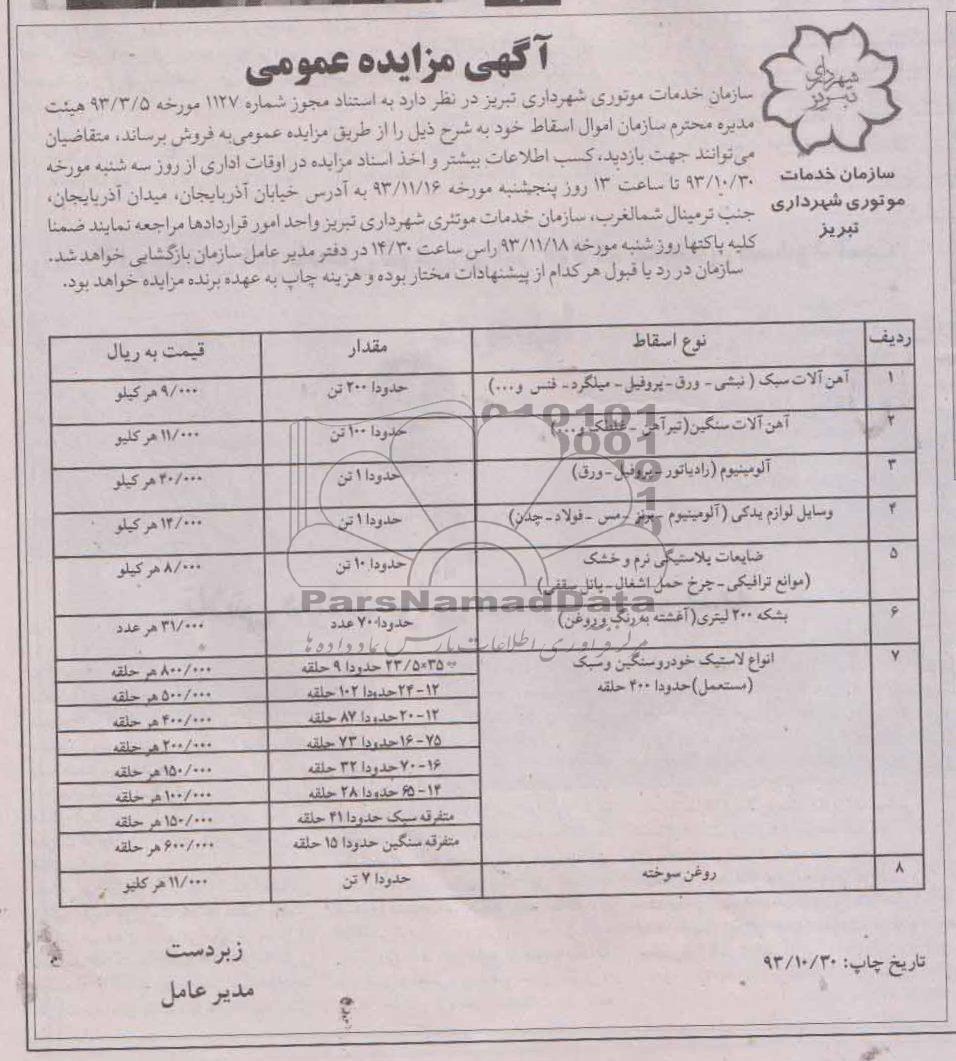 آگهی مزایده عمومی
شهرداری
تبریز
سازمان خدمات
موتوری شهرداری
تبریز
سازمان خدمات موتوری شهرداری تبریز در نظر دارد به استناد مجوز شماره ۱۱۲۷ مورخه ۹۳/۳/۵ هیئت
مدیره محترم سازمان اموال اسقاط خود به شرح ذیل را از طریق مزایده عمومی‌به فروش برساند، متقاضیان
می‌توانند جهت بازدید، کسب اطلاعات بیشتر و اخذ اسناد مزایده در اوقات اداری از روز سه شنبه مورخه
۹۳/۱۰/۳۰ تا ساعت ۱۳ روز پنجشنبه مورخه ۹۳/۱۱/۱۶ به آدرس خیابان آذربایجان، میدان آذربایجان،
جنب ترمینال شمالغرب، سازمان خدمات موتوری شهرداری تبریز واحد امور قراردادها مراجعه نمایند ضمنا
کلیه پاکتها روز شنبه مورخه ۹۳/۱۱/۱۸ راس ساعت ۱۴/۳۰ در دفتر مدیر عامل سازمان بازگشایی خواهد شد.
سازمان در رد یا قبول هر کدام از پیشنهادات مختار بوده و هزینه چاپ به عهده برنده مزایده خواهد بود.
ردیف نوع اسقاط مقدار قیمت به ریال
۱ آهن آلات سبک ( نبشی - ورق - پروفیل - میلگرد - فنس و...) حدودا ۲۰۰ تن ۹/۰۰۰ هر کیلو
۲ آهن آلات سنگین(تیرآهن - غلتک و...) حدودا ۱۰۰ تن ۱۱/۰۰۰ هر کلیو
۳ آلومینیوم (رادیاتور - پروفیل - ورق) حدودا ۱ تن ۴۰/۰۰۰ هر کیلو
۴ وسایل لوازم یدکی (آلومینیوم - برنز - مس - فولاد - چدن) حدودا ۱ تن ۱۴/۰۰۰ هر کیلو
۵ ضایعات پلاستیگی نرم و خشک حدودا ۱۰ تن ۸/۰۰۰ هر کیلو
(موانع ترافیکی - چرخ حمل اشغال - پانل سقفی)
۶ بشکه ۲۰۰ لیتری(آغشته به رنگ و روغن) حدودا ۷۰ عدد ۳۱/۰۰۰ هر عدد
۷ انواع لاستیک خودرو سنگین و سبک
(مستعمل)حدودا ۴۰۰ حلقه
۲۳/۵*۳۵ حدودا ۹ حلقه ۸۰۰/۰۰۰ هر حلقه
۱۲-۲۴ حدودا ۱۰۲ حلقه ۵۰۰/۰۰۰ هر حلقه
۱۲-۲۰ حدودا ۸۷ حلقه ۴۰۰/۰۰۰ هر حلقه
۷۵-۱۶ حدودا ۷۳ حلقه ۲۰۰/۰۰۰ هر حلقه
۱۶-۷۰ حدودا ۳۲ حلقه ۱۵۰/۰۰۰ هر حلقه
۱۴-۶۵ حدودا ۲۸ حلقه ۱۰۰/۰۰۰ هر حلقه
متفرقه سبک حدودا ۴۱ حلقه ۱۵۰/۰۰۰ هر حلقه
متفرقه سنگین حدودا ۱۵ حلقه ۶۰۰/۰۰۰ هر حلقه
۸ روغن سوخته حدودا ۷ تن ۱۱/۰۰۰ هر کلیو
ParsNamadData
زبردست
مدیر عامل
تاریخ چاپ: ۹۳/۱۰/۳۰